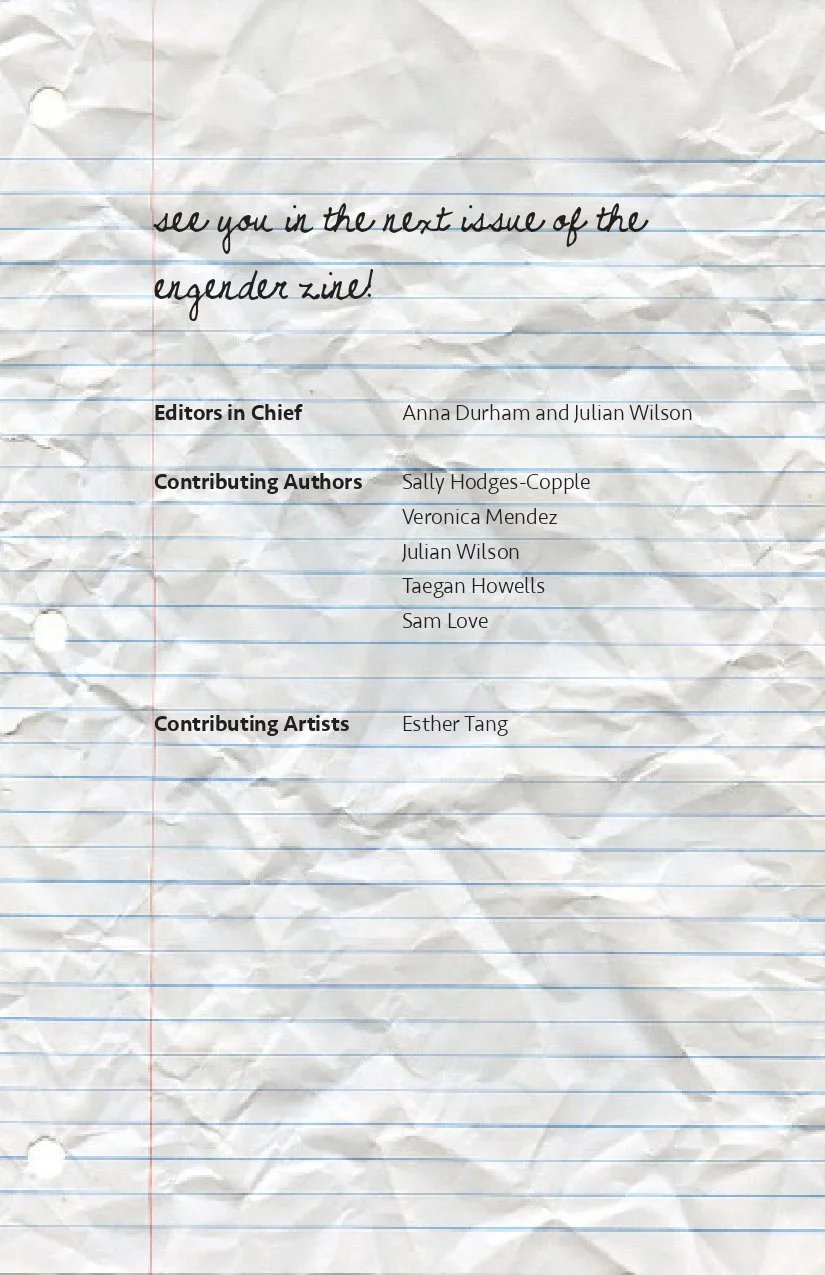 see you in the next issue of the
engender zine!
Editors in Chief Anna Durham and Julian Wilson
Contributing Authors Sally Hodges-Copple
Veronica Mendez
Julian Wilson
Taegan Howells
Sam Love
Contributing Artists Esther Tang